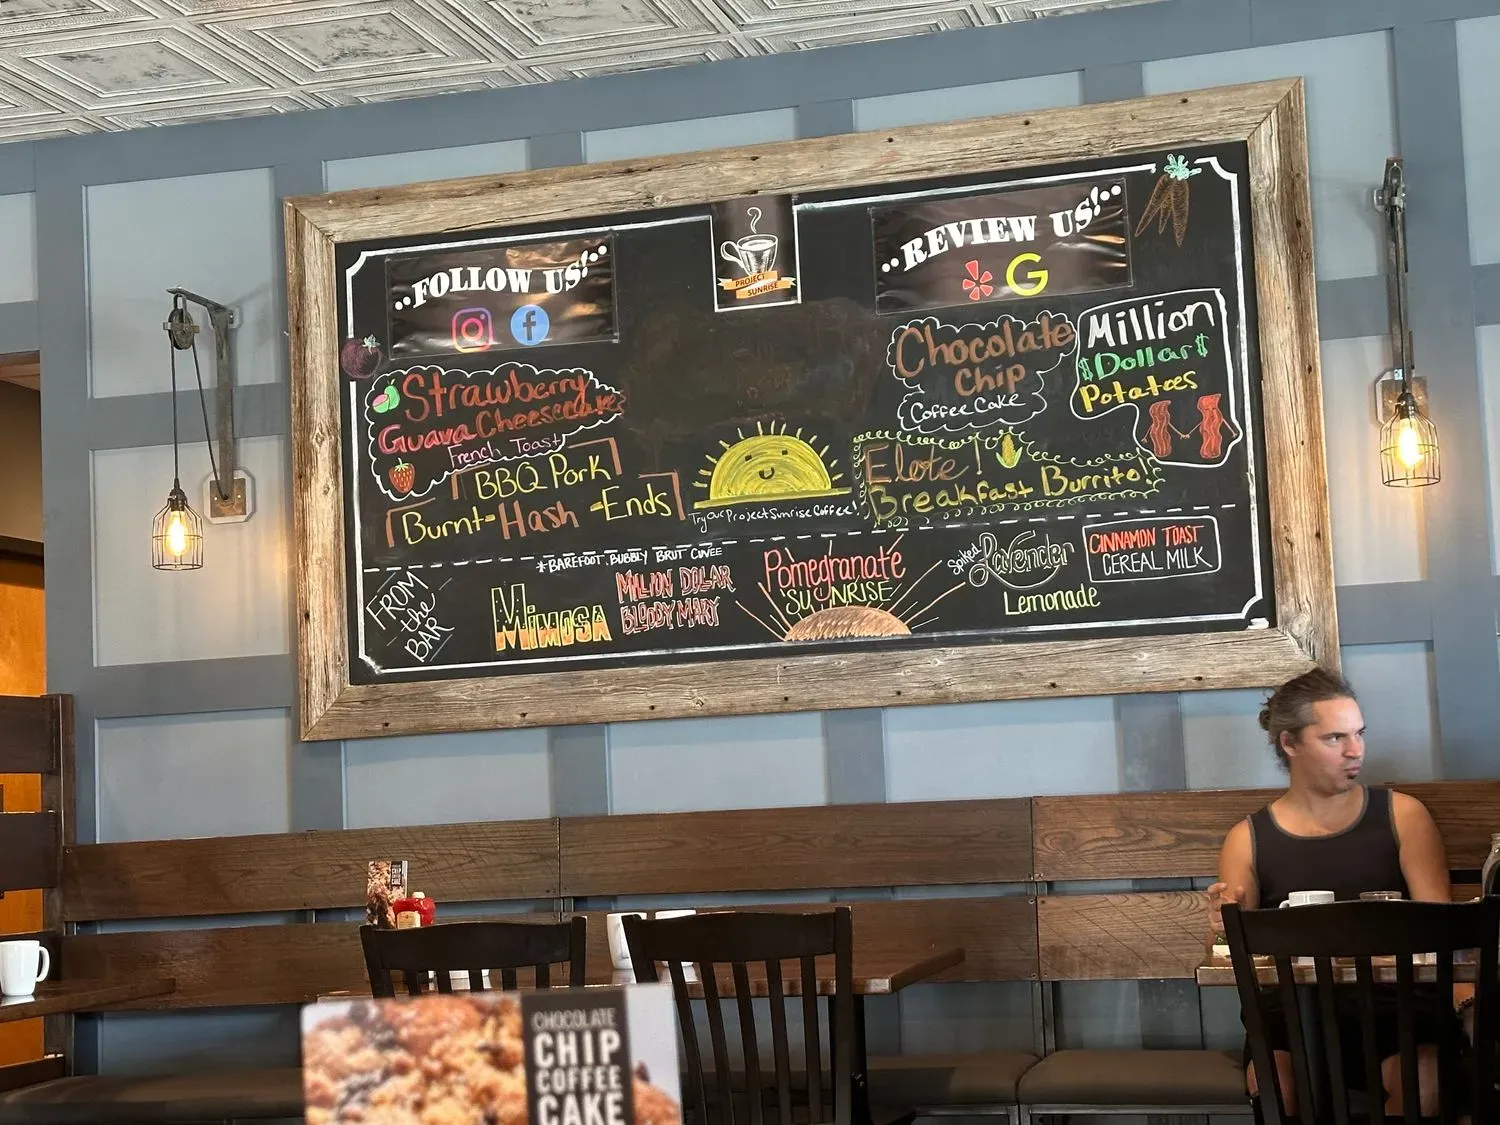 ..FOLLOW US!..
f
PROJECT
SUNRISE
..REVIEW US!..
G
Strawberry
Guava Cheesecake
French Toast
BBQ Pork
Burnt-Hash-Ends
Try Our Project Sunrise Coffee!
Chocolate
Chip
Coffee Cake
Million
$Dollar$
Potatoes
Elote!
Breakfast Burrito!
FROM
the
BAR
*BAREFOOT BUBBLY BRUT CUVEE
MIMOSA
MILLION DOLLAR
BLOODY MARY
Pomegranate
SUNRISE
Spiked
Lavender
Lemonade
CINNAMON TOAST
CEREAL MILK
CHOCOLATE
CHIP
COFFEE
CAKE
CHOCOLATE
CHIP
COFFEE
CAKE